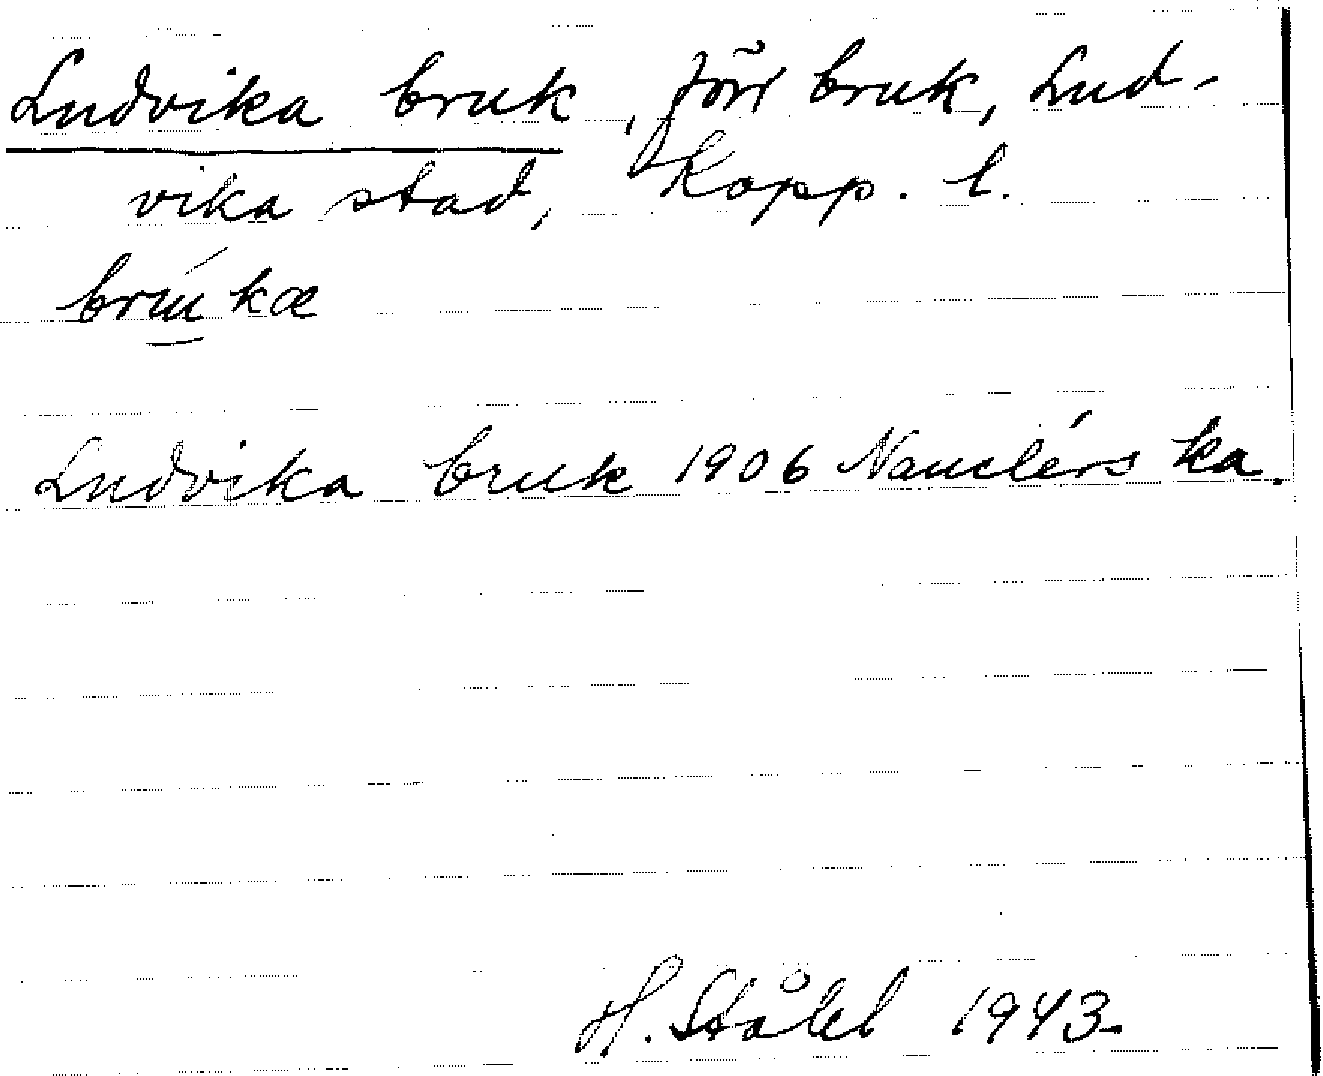 Ludvika bruk, förr bruk, Lud-
vika stad, Kopp. l.
brúkæ
Ludvika bruk 1906 Nauclérs ka.
H. Ståhl 1943.